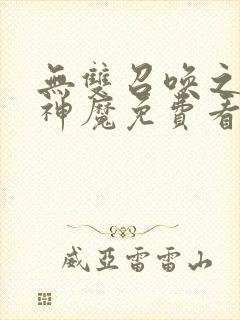 無雙召喚之
神魔免費看
威亞雷雷山